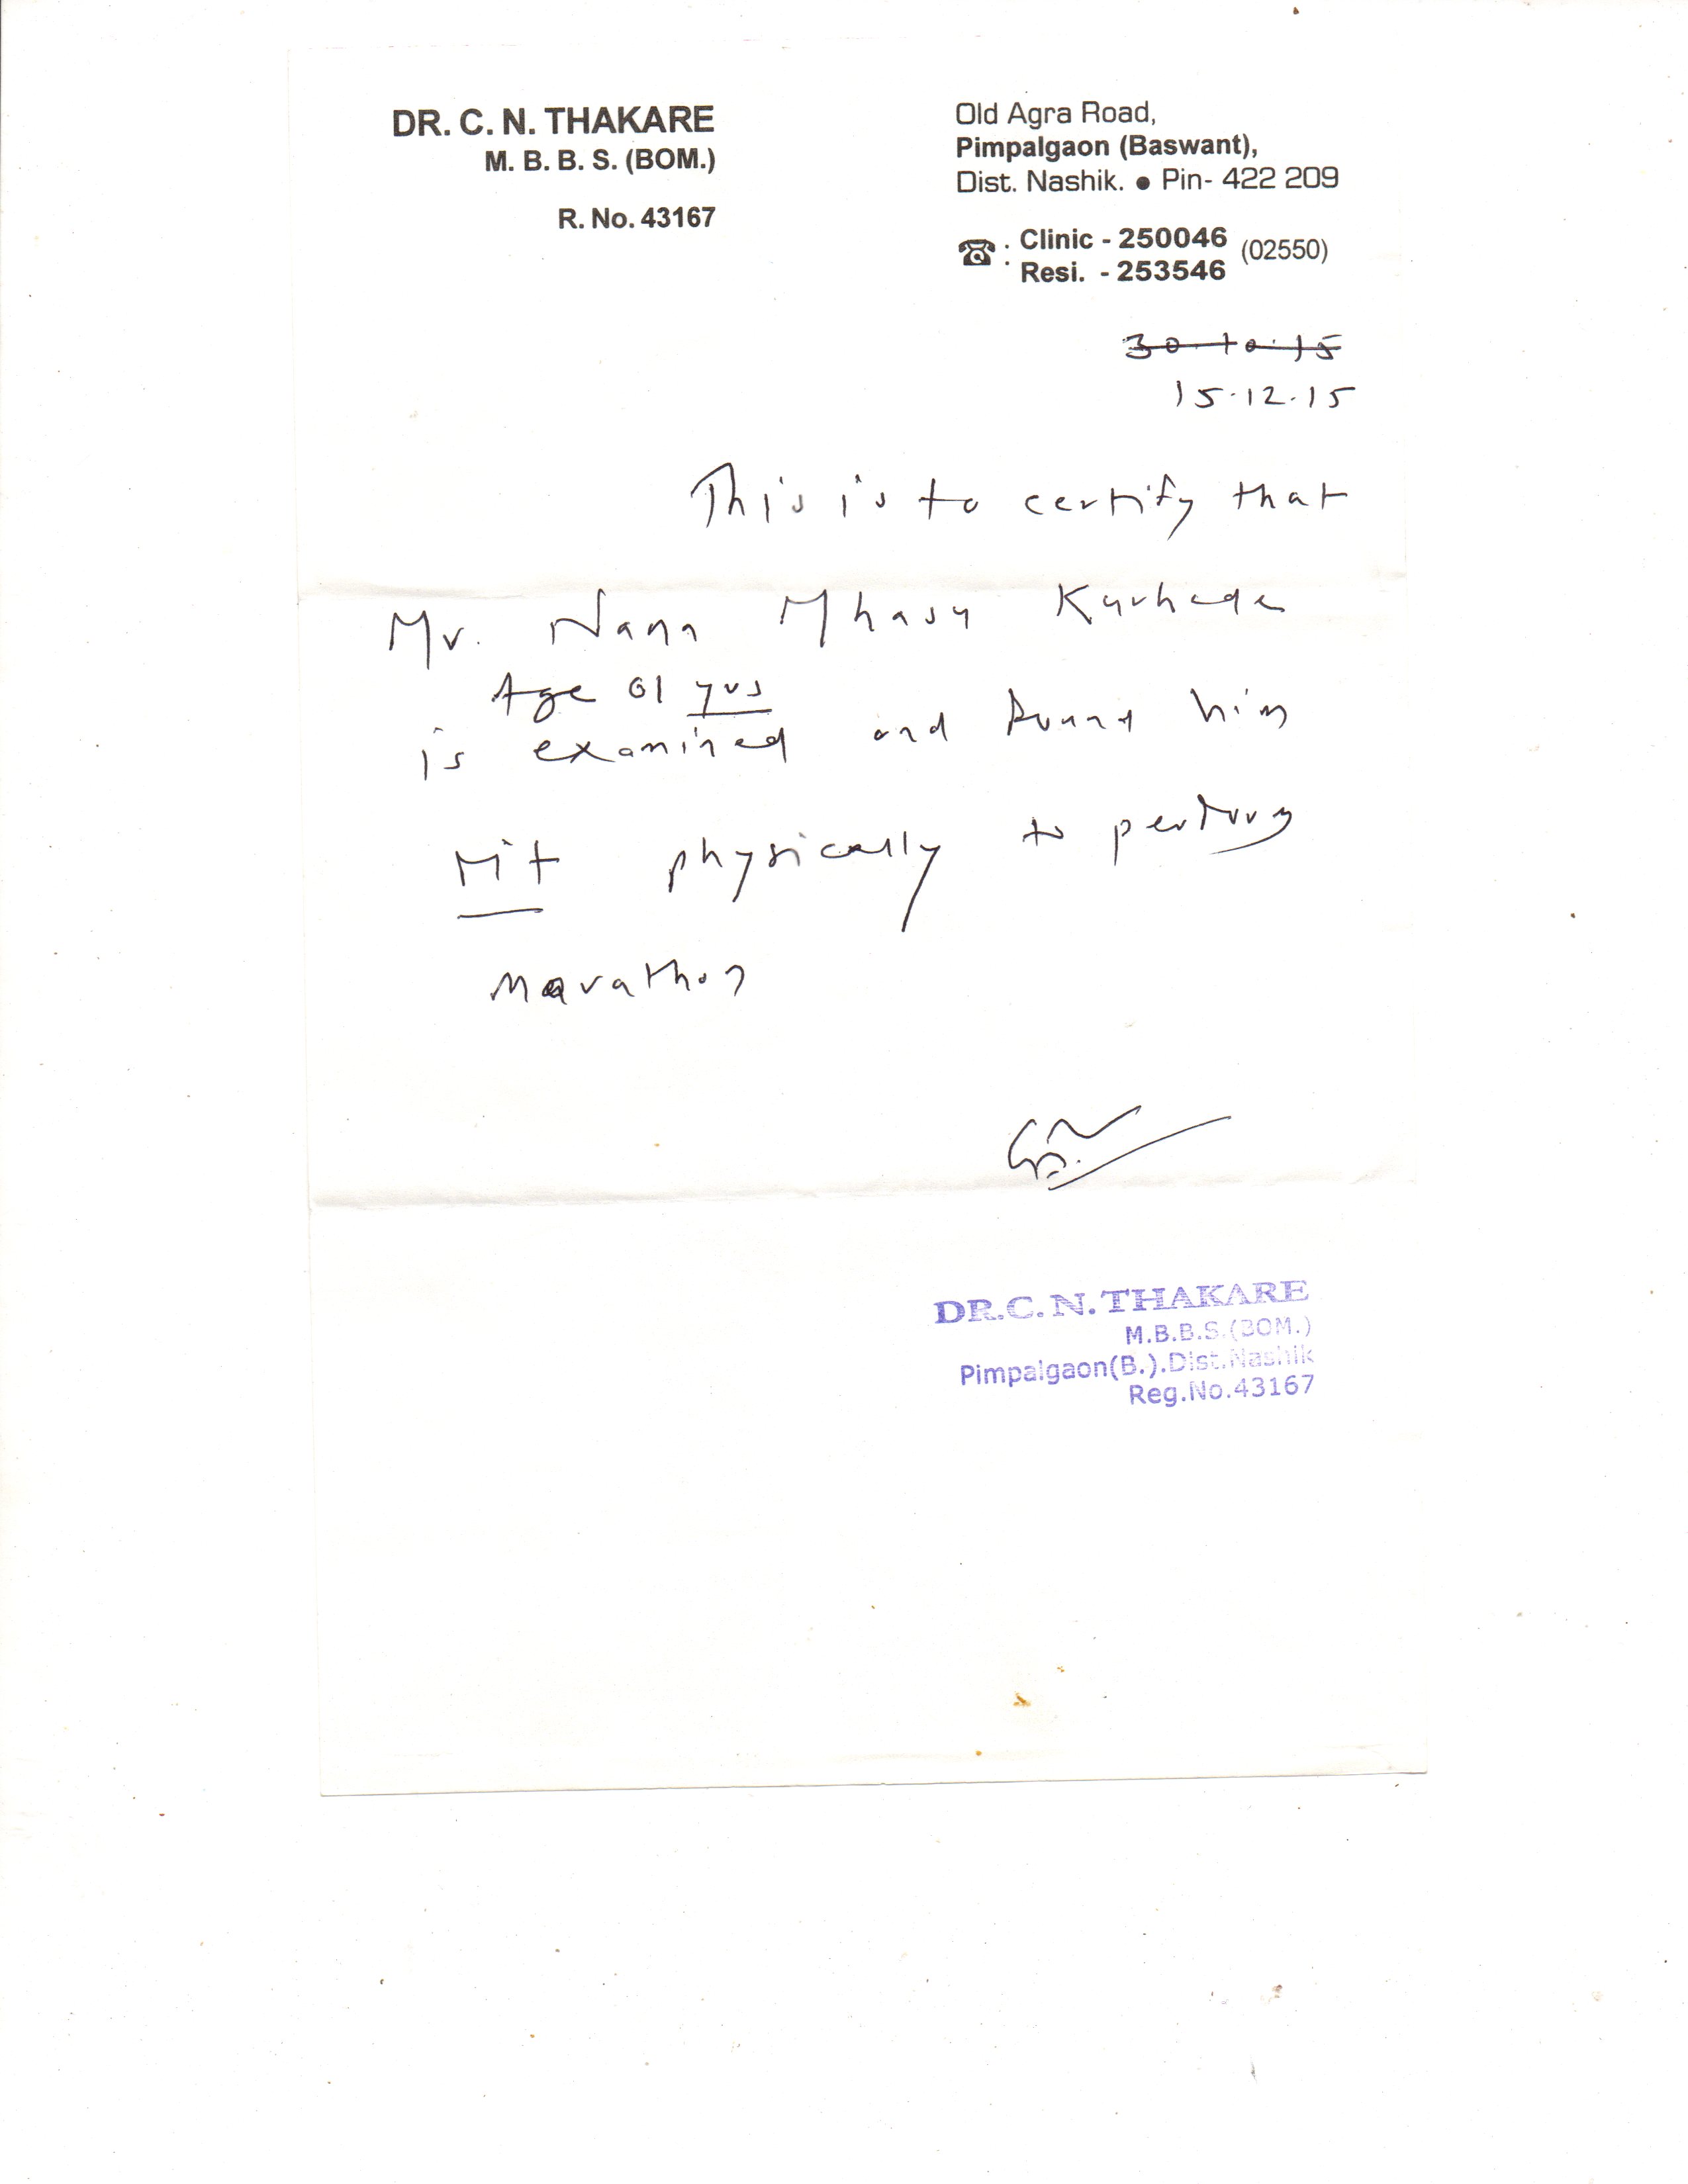 DR. C. N. THAKARE
M. B. B. S. (BOM.)
R. No. 43167
Old Agra Road,
Pimpalgaon (Baswant),
Dist. Nashik. ● Pin- 422 209
☎ : Clinic - 250046 (02550)
Resi. - 253546
30.10.15
15.12.15
This is to certify that
Mr. Nana Mhasu
Age 61 yrs
is examined and found him
Fit physically to perform
Marathon
DR.C.N.THAKARE
M.B.B.S.(BOM.)
Pimpalgaon(B.).Dist.Nashik
Reg.No.43167